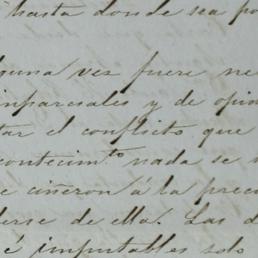 hasta donde sea po
guna vez fuere ne
inparciales y de opin
tar el conflicto que
contecim.to nada se
e ciñeron á la prec
derse de ella. Las d
é imputables solo